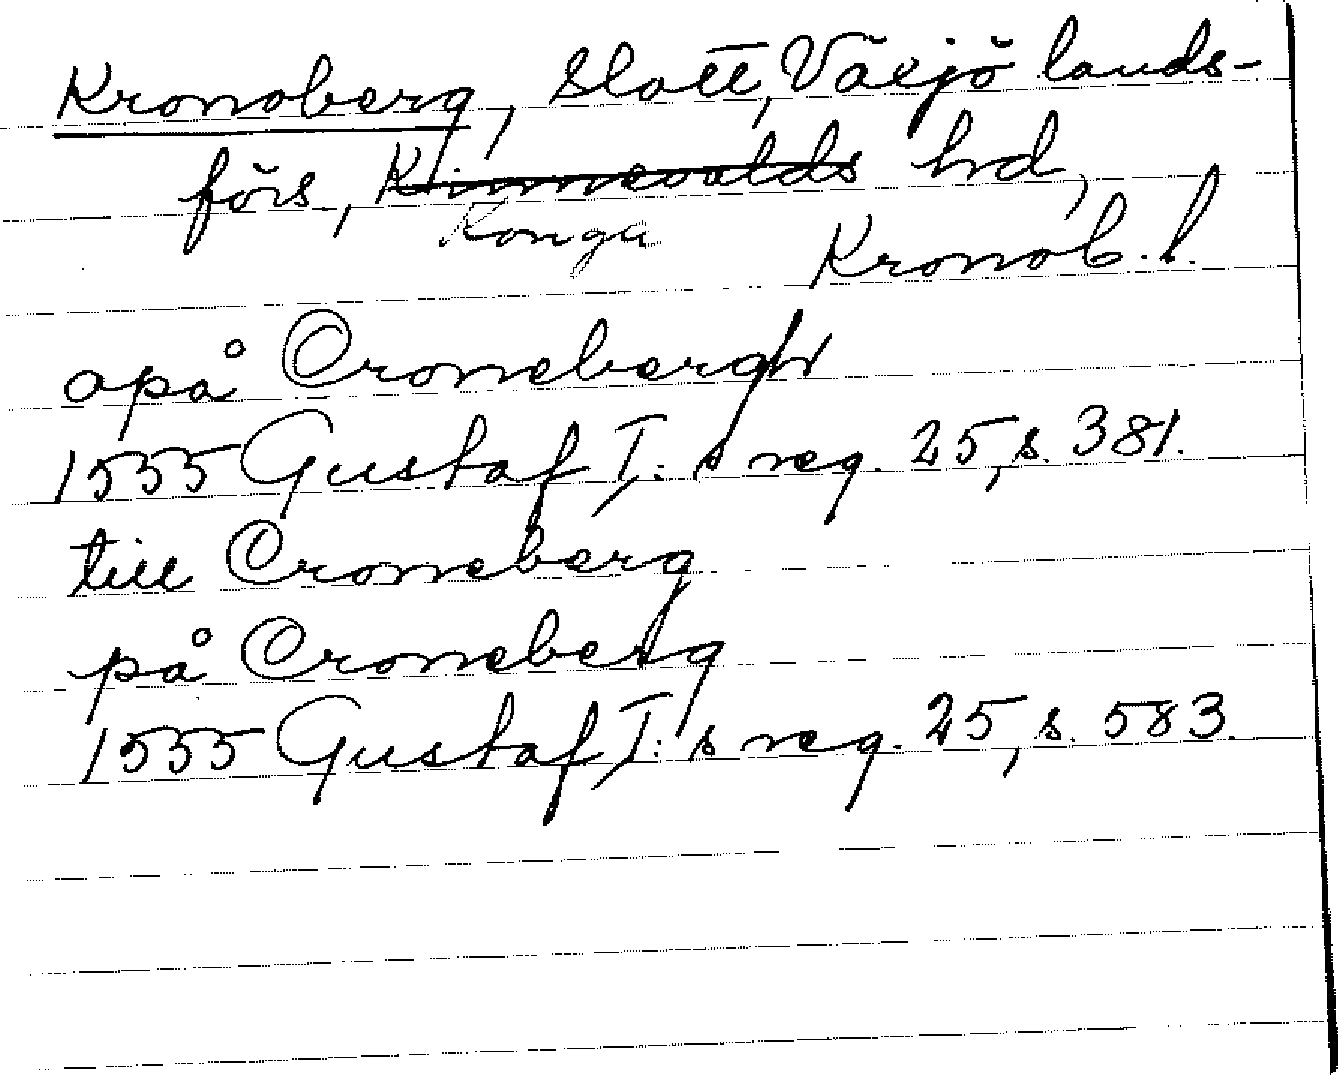 Kronoberg, Slott, Växjö lands-
förs, Kinnevalds hrd,
Konga
Kronob. l.
opå Cronebergh
1555 Gustaf I:s reg. 25, s. 381.
till Croneberg
på Croneberg
1555 Gustaf I:s reg. 25, s. 583.